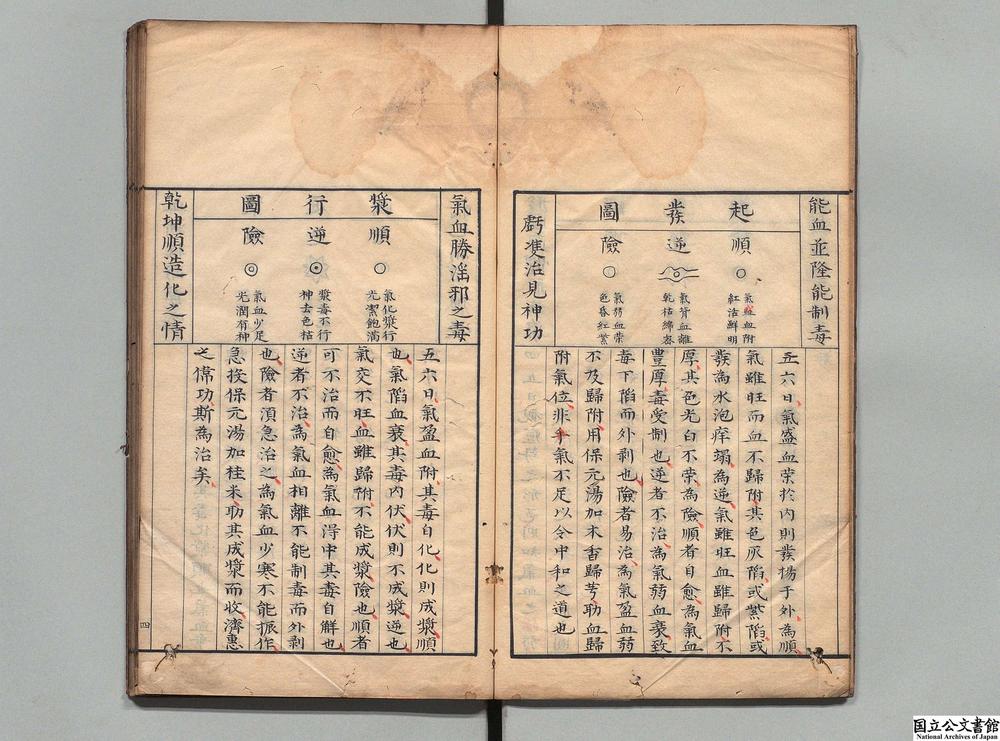 能血並隆能制毒
起發圖
順
氣血附
紅活鮮明
逆
氣背血離
乾枯綿
險
氣弱血榮
色昏紅紫
虧隻治見神功
五六日氣盛血榮於內則發揚于外為順
氣雖旺而血不歸附其色灰陷或紫陷或
發為水泡痒塌為逆氣雖旺血雖歸附不
厚其色光白不榮為險順者自愈為氣血
豐厚毒受制也逆者不治為氣弱血衰致
毒下陷而外剥也險者易治為氣盈血弱
不及歸附用保元湯加木香歸芎助血歸
附氣位非乎氣不足以令中和之道也
氣血勝滛邪之毒
漿行圖
順
氣化漿行
光潔飽滿
逆
漿毒不行
神去色枯
險
氣血少足
光潤有神
乾坤順造化之情
五六日氣盈血附其毒自化化則成漿順
也氣陷血衰其毒內伏伏則不成漿逆也
氣交不旺血雖歸附不能成漿險也順者
可不治而自愈為氣血淂中其毒自解也
逆者不治為氣血相離不能制毒而外剥
也險者湏急治之為氣血少寒不能振作
急投保元湯加桂米助其成漿而收濟惠
之偹功斯為治矣
四
国立公文書館
National Archives of Japan